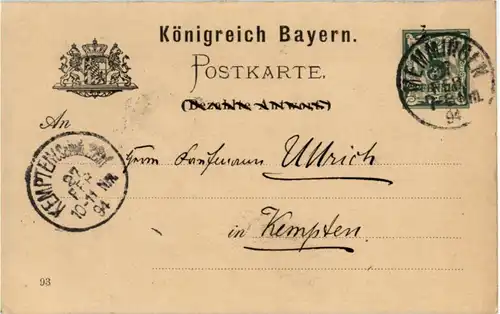 Königreich Bayern.
MEMMINGEN
94
POSTKARTE.
(Bezahlte Antwort)
An
KEMPTEN
27
FEB
10-11 Nm
94
Herrn Kaufmann Ullrich
in Kempten
93